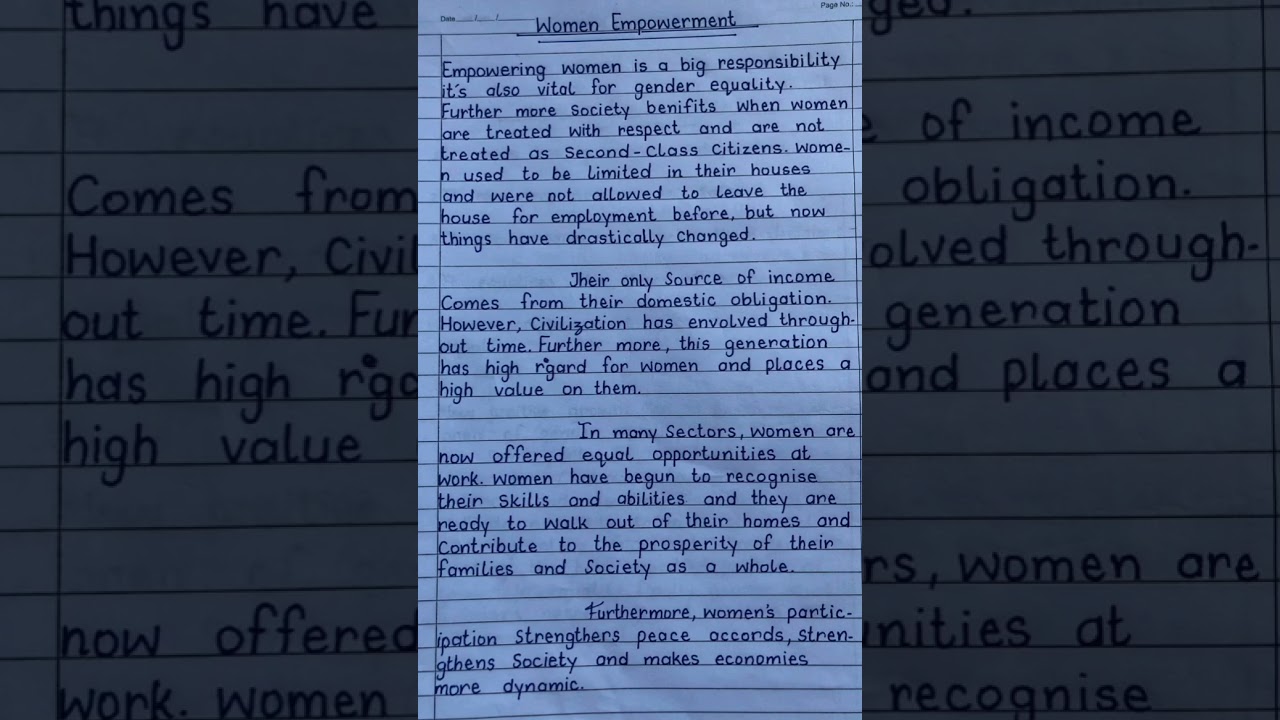 Date ___/___/___
Page No.:
Women Empowerment
Empowering women is a big responsibility
it's also vital for gender equality.
Further more Society benifits when women
are treated with respect and are not
treated as Second-Class Citizens. Wome-
n used to be limited in their houses
and were not allowed to leave the
house for employment before, but now
things have drastically changed.
Their only Source of income
Comes from their domestic obligation.
However, Civilization has envolved through-
out time. Further more, this generation
has high r°gard for women and places a
high value on them.
In many Sectors, women are
now offered equal opportunities at
work. Women have begun to recognise
their Skills and abilities and they are
ready to walk out of their homes and
Contribute to the prosperity of their
families and Society as a whole.
Furthermore, women's partic-
ipation Strengthers peace accords, stren-
gthens Society and makes economies
more dynamic.